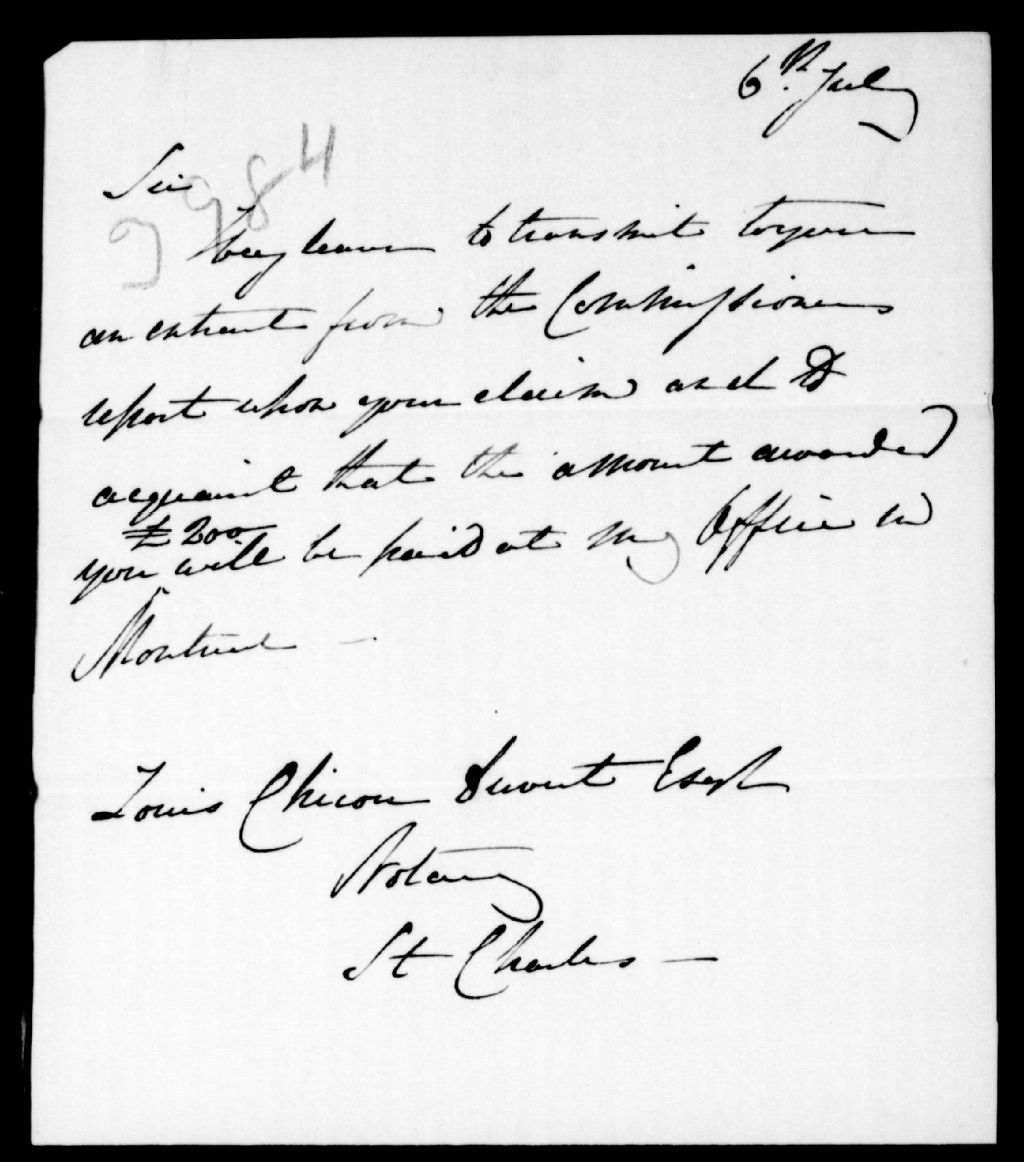 6th July
3984
Sir
I beg leave to transmit to you
an extract from the Commissioners
report upon your claim and to
acquaint that the amount awarded
£200
you will be paid at my Office in
Montreal —.
Louis Chicou Duvert Esqr
Notary
St Charles —